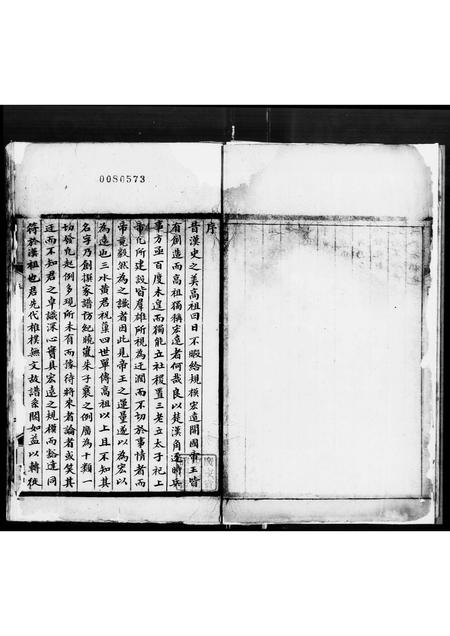 0080573
序
昔漢史之美高祖曰日不暇給規模宏遠開國帝王皆
有創造而高祖獨稱宏遠者何哉良以楚漢角逐時兵
事方亟百度未遑而獨能立社稷置三老立太子祀上
帝凡所建設皆羣雄所視為迂濶而不切於事情者而
帝竟毅然為之識者因此見帝王之運量遂以為宏以
為遠也三水黃君祝蕖四世單傳高祖以上且不知其
名字乃創撰家譜仿紀曉嵐朱子襄之例廣為十類一
切發凡起例多現所未有而條待將來者論者或笑其
迂而不知君之卓識深心實具宏遠之規模而豁達同
符於漢祖也君先代椎樸無文故譜系闕如益以轉徙